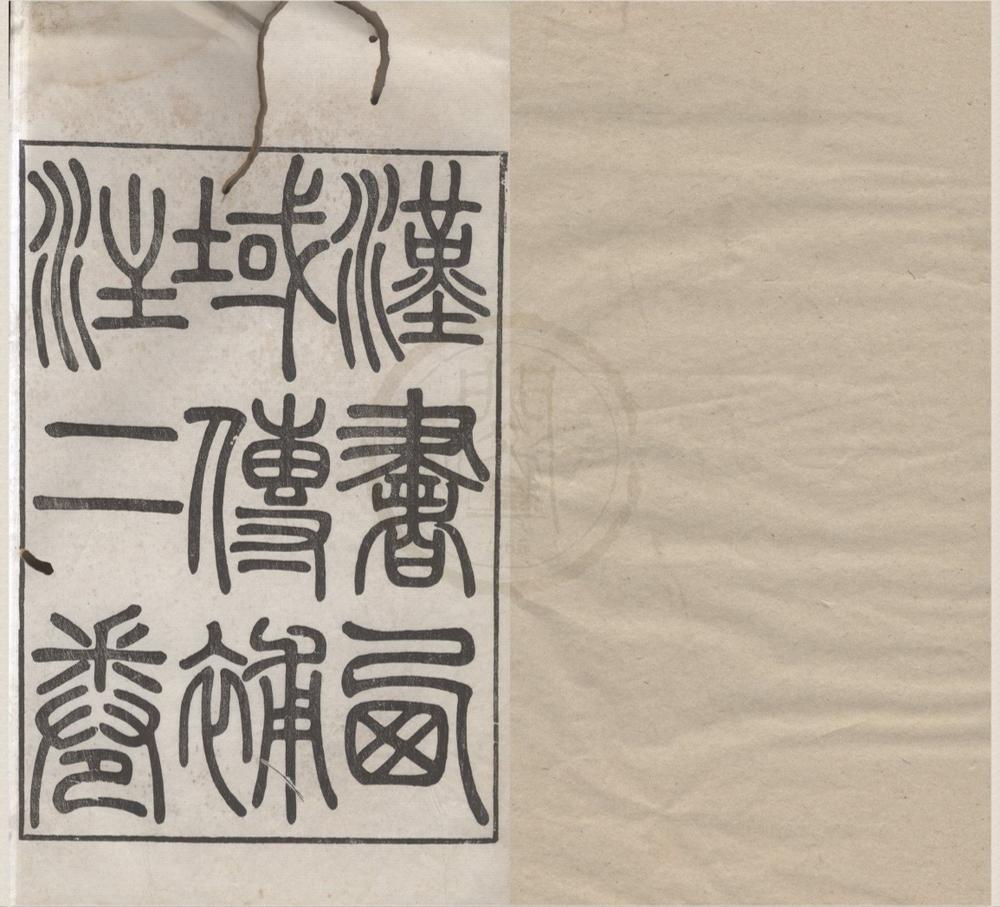 漢書西
域傳補
注二卷